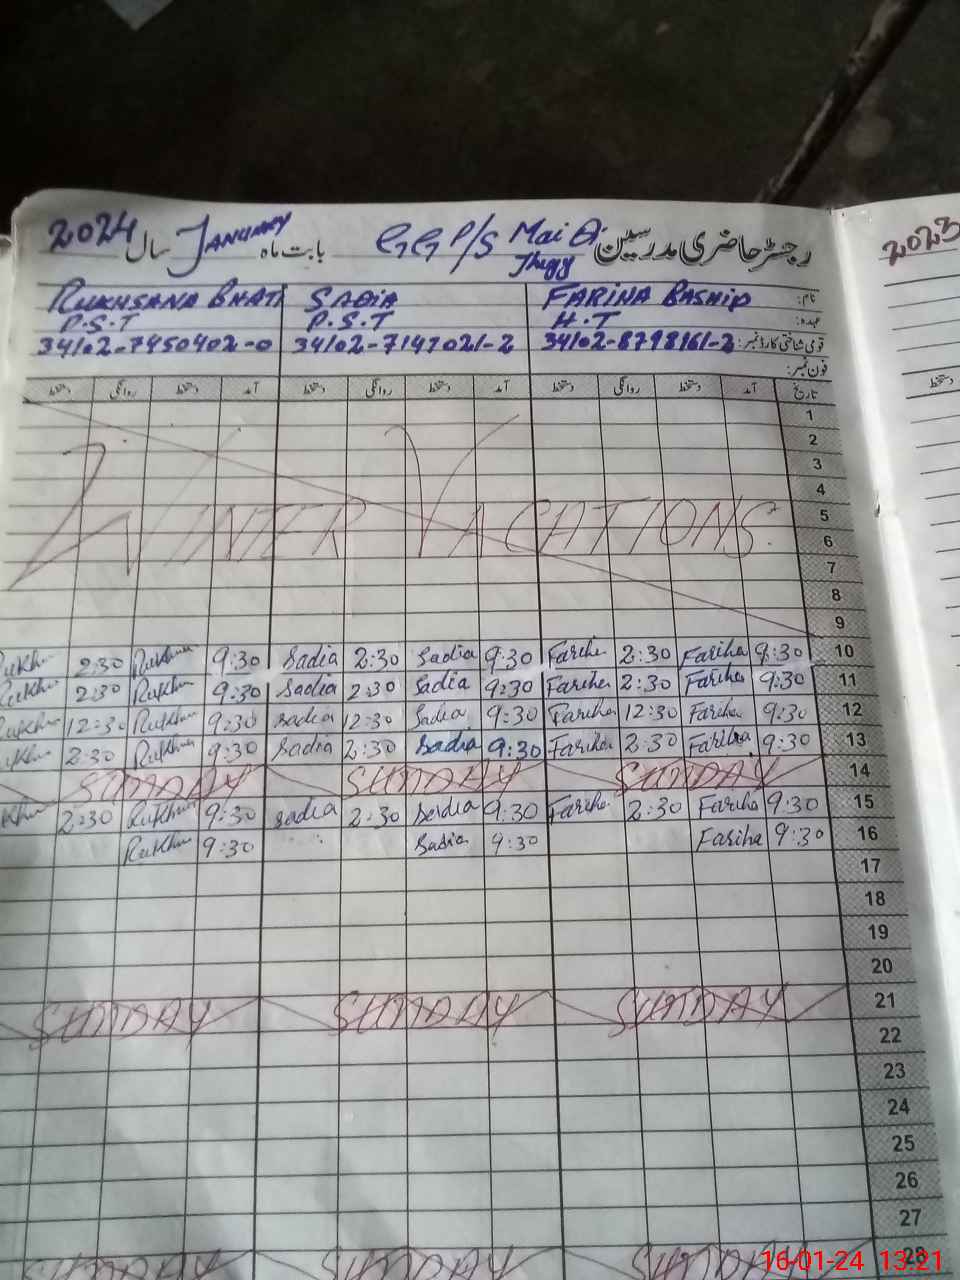 2024 سال JANUARY بابت ماہ GGP/S Mai Di Jhggy رجسٹر حاضری مدرسین
2023
RUKHSANA BHATI SADIA FARIHA RASHID نام:
P.S.T P.S.T H.T عہدہ:
34102-7450402-0 34102-7147021-2 34102-8798161-2 قومی شناختی کارڈ نمبر:
فون نمبر:
دستخط روانگی دستخط آمد دستخط روانگی دستخط آمد دستخط روانگی دستخط آمد تاریخ
دستخط
1
2
3
4
WINTER VACATIONS 5
6
7
8
9
Rukh 2:30 Rukhsa 9:30 Sadia 2:30 Sadia 9:30 Fariha 2:30 Fariha 9:30 10
Rukh 2:30 Rukh 9:30 Sadia 2:30 Sadia 9:30 Fariha 2:30 Fariha 9:30 11
Rukh 12:30 Rukh 9:30 Sadia 12:30 Sadia 9:30 Fariha 12:30 Fariha 9:30 12
2:30 Rukh 9:30 Sadia 2:30 Sadia 9:30 Fariha 2:30 Fariha 9:30 13
SUNDAY SUNDAY SUNDAY 14
2:30 Rukh 9:30 Sadia 2:30 Sadia 9:30 Fariha 2:30 Fariha 9:30 15
Rukh 9:30 Sadia 9:30 Fariha 9:30 16
17
18
19
20
SUNDAY SUNDAY SUNDAY 21
22
23
24
25
26
27
SUNDAY SUNDAY SUNDAY 28
16-01-24 13:21